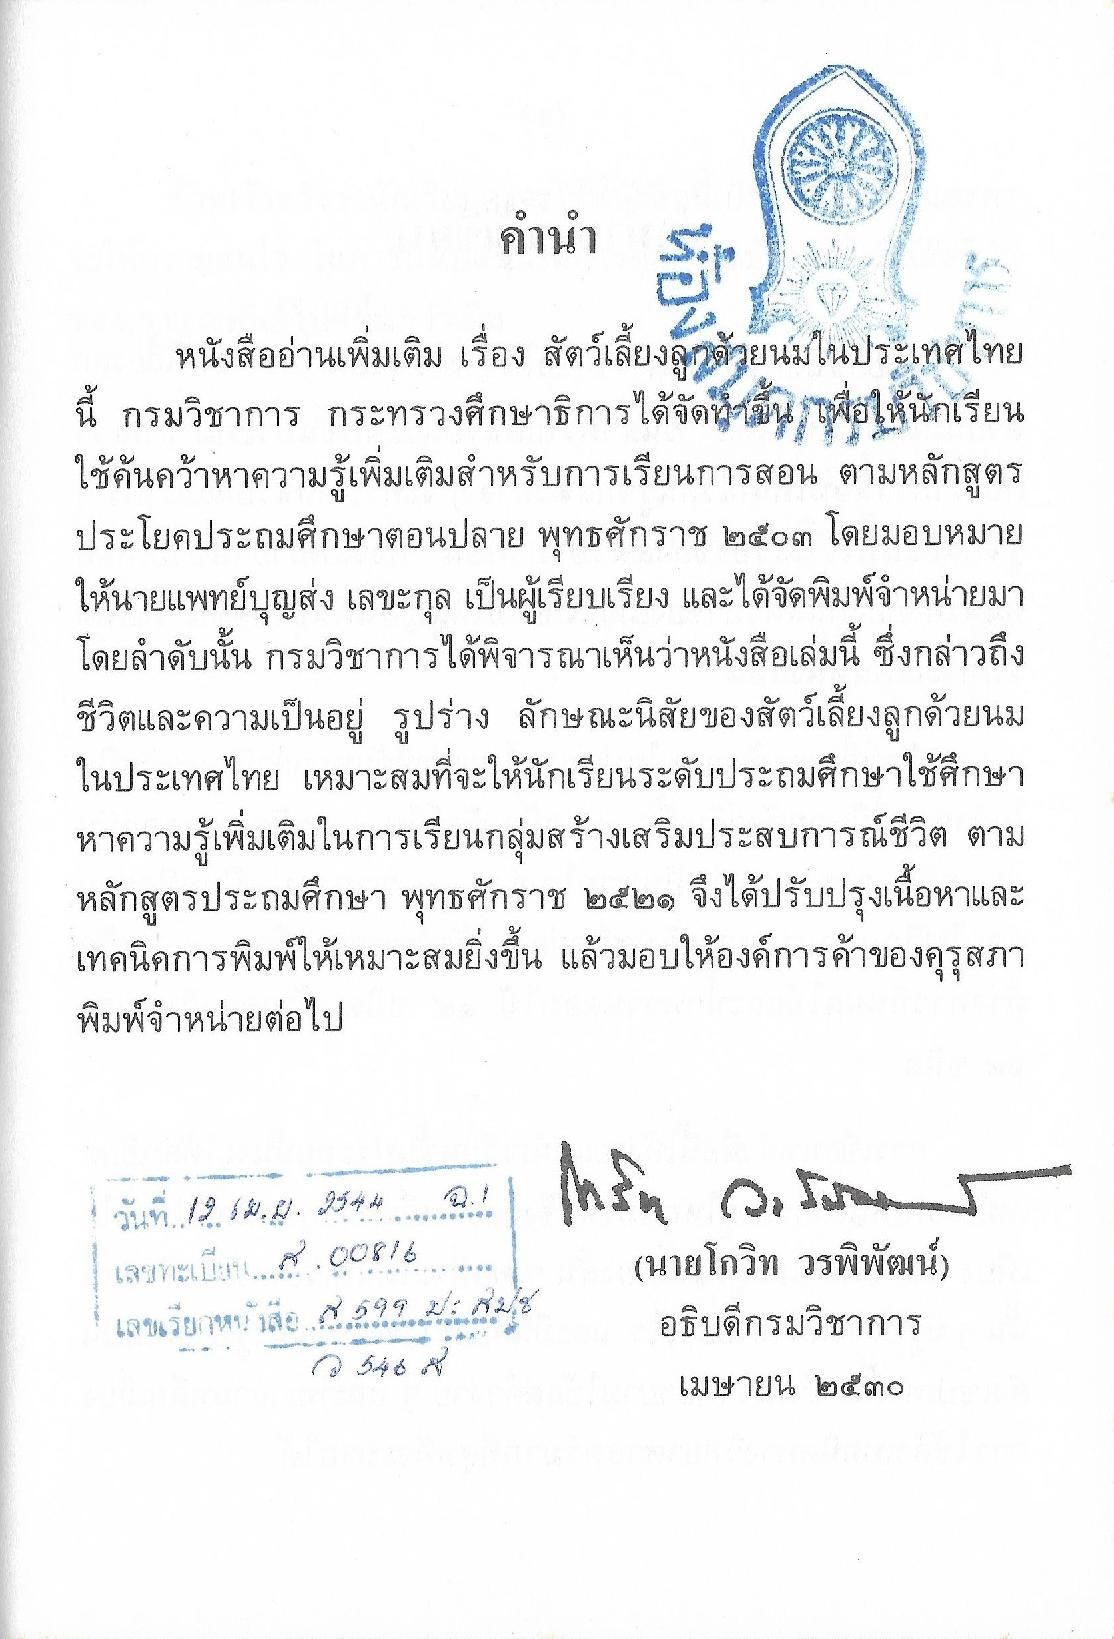 คำนำ
หนังสืออ่านเพิ่มเติม เรื่อง สัตว์เลี้ยงลูกด้วยนมในประเทศไทย
นี้ กรมวิชาการ กระทรวงศึกษาธิการได้จัดทำขึ้น เพื่อให้นักเรียน
ใช้ค้นคว้าหาความรู้เพิ่มเติมสำหรับการเรียนการสอน ตามหลักสูตร
ประโยคประถมศึกษาตอนปลาย พุทธศักราช ๒๕๐๓ โดยมอบหมาย
ให้นายแพทย์บุญส่ง เลขะกุล เป็นผู้เรียบเรียง และได้จัดพิมพ์จำหน่ายมา
โดยลำดับนั้น กรมวิชาการได้พิจารณาเห็นว่าหนังสือเล่มนี้ ซึ่งกล่าวถึง
ชีวิตและความเป็นอยู่ รูปร่าง ลักษณะนิสัยของสัตว์เลี้ยงลูกด้วยนม
ในประเทศไทย เหมาะสมที่จะให้นักเรียนระดับประถมศึกษาใช้ศึกษา
หาความรู้เพิ่มเติมในการเรียนกลุ่มสร้างเสริมประสบการณ์ชีวิต ตาม
หลักสูตรประถมศึกษา พุทธศักราช ๒๕๒๑ จึงได้ปรับปรุงเนื้อหาและ
เทคนิคการพิมพ์ให้เหมาะสมยิ่งขึ้น แล้วมอบให้องค์การค้าของคุรุสภา
พิมพ์จำหน่ายต่อไป
(นายโกวิท วรพิพัฒน์)
อธิบดีกรมวิชาการ
เมษายน ๒๕๓๐
วันที่ 12 เม.ย. 2544 ฉ.1
เลขทะเบียน ส.00816
เลขเรียกหนังสือ ส 599
ว 546 ส